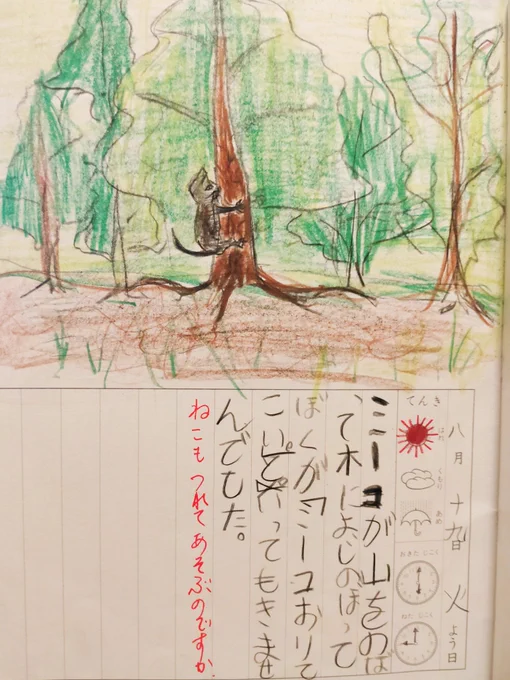 八月十九日火よう日
てんき
はれ
くもり
あめ
おきた じこく
ねた じこく
ミーコが山をのぼ
って木によじのぼって
ぼくがミーコおりて
こい。といってもきませ
んでした。
ねこも つれて あそぶのですか。